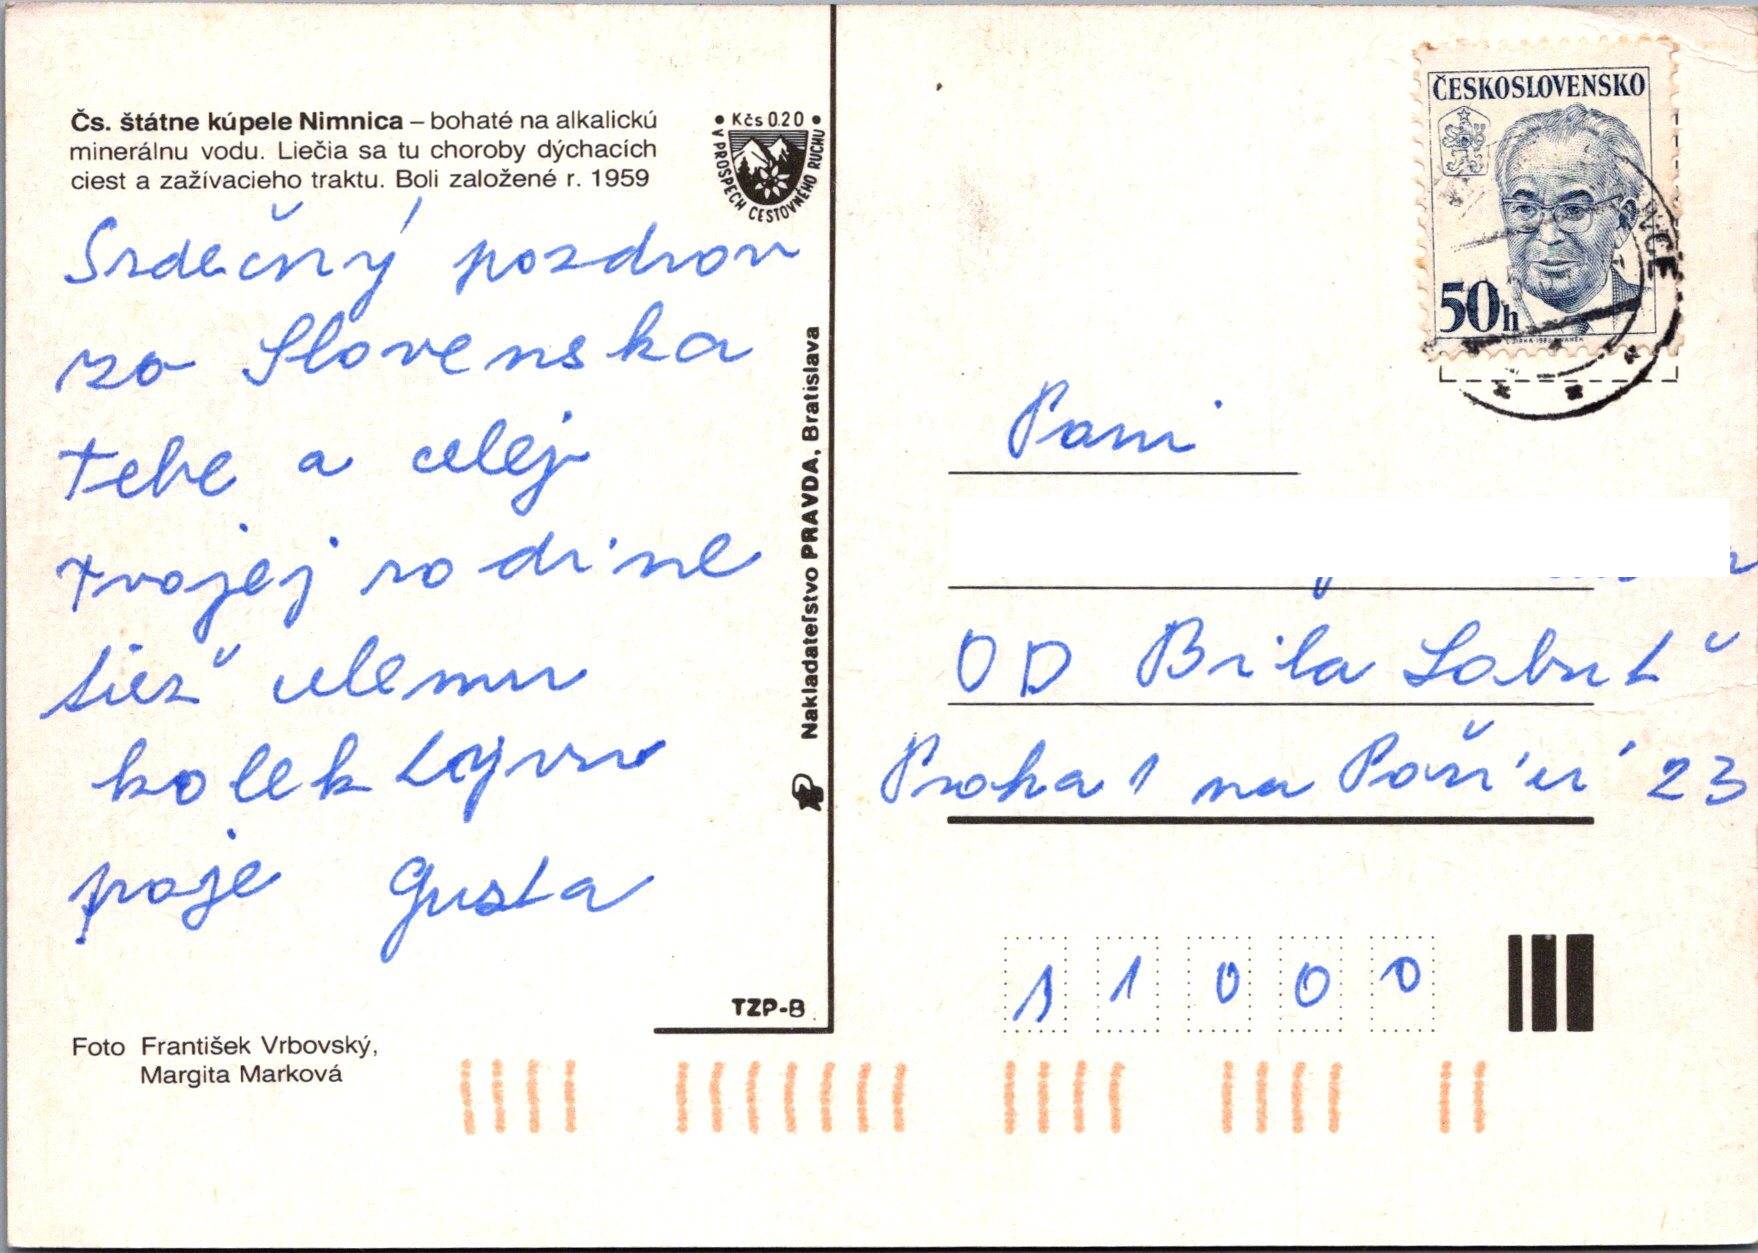 Čs. štátne kúpele Nimnica – bohaté na alkalickú
minerálnu vodu. Liečia sa tu choroby dýchacích
ciest a zažívacieho traktu. Boli založené r. 1959
• Kčs 0.20 •
V PROSPECH CESTOVNÉHO RUCHU
Srdečný pozdrav
zo Slovenska
tebe a celej
tvojej rodine
tiež celemu
kolektyvu
praje Gusta
Nakladateľstvo PRAVDA, Bratislava
TZP-8
Foto František Vrbovský,
Margita Marková
ČESKOSLOVENSKO
50h
Pani
OD Bíla Labuť
Praha 1 na Poříčí 23
11000